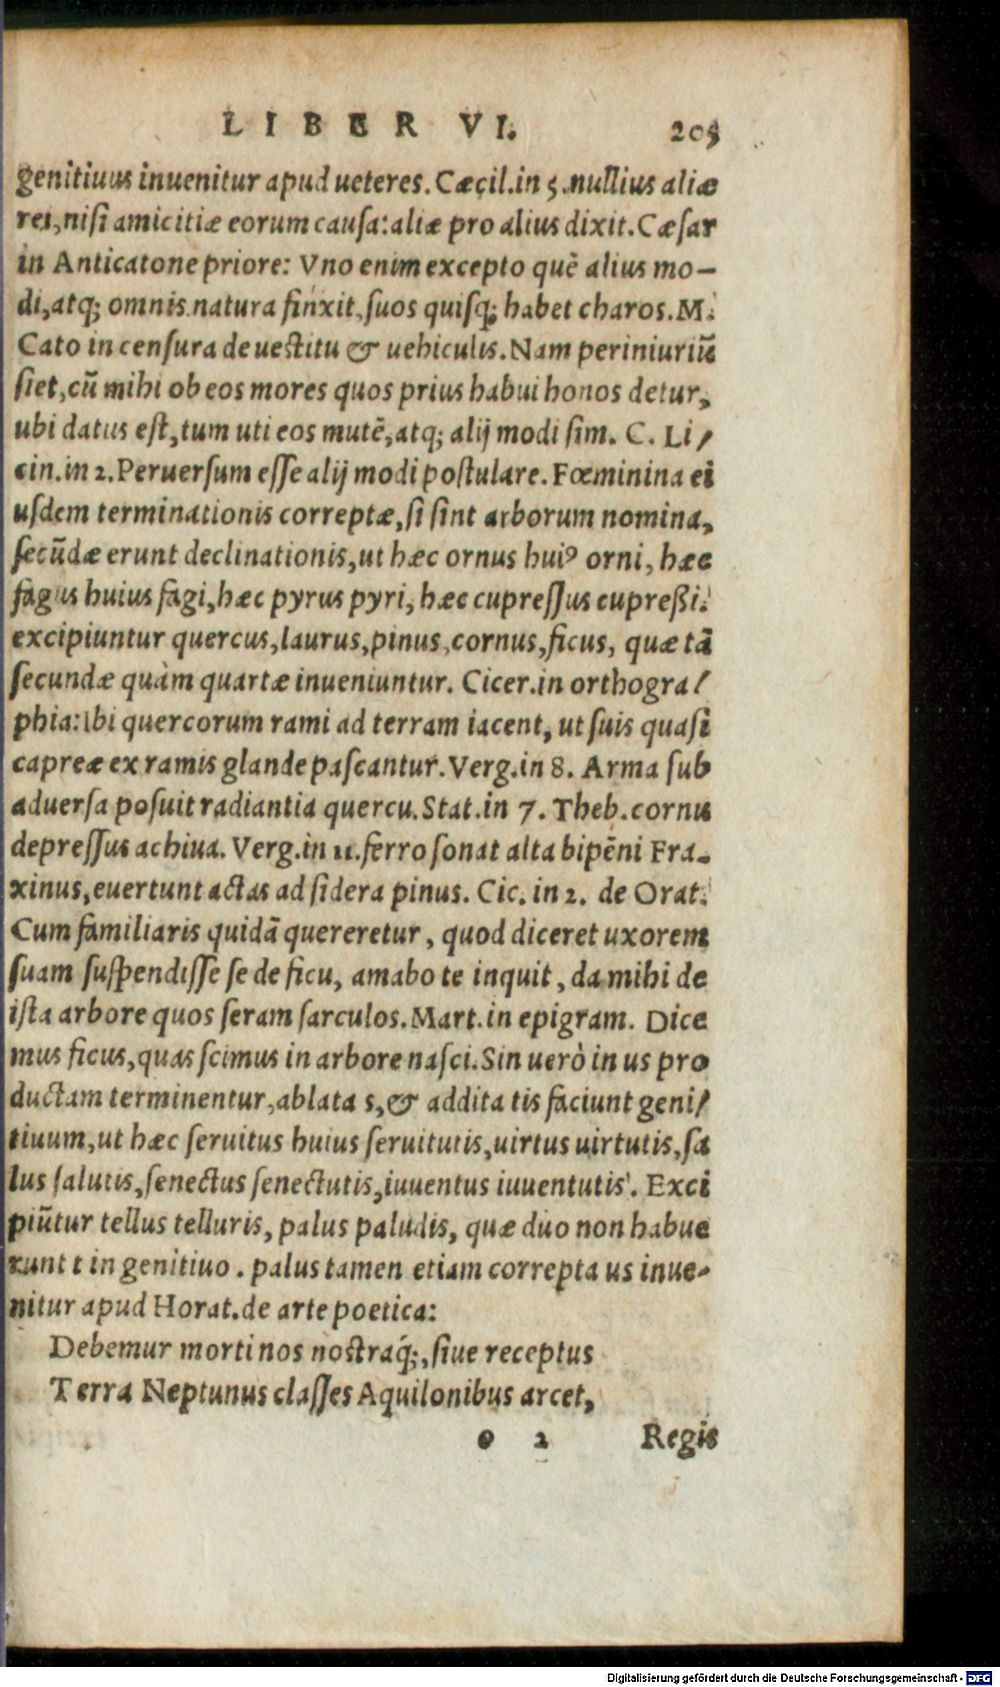 LIBER VI. 205
genitiuus inuenitur apud ueteres. Cæcil. in 5. nullius aliæ
rei, nisi amicitiæ eorum causa: aliæ pro alius dixit. Cæsar
in Anticatone priore: Vno enim excepto quē alius mo-
di, atq; omnis natura finxit, suos quisq; habet charos. M.
Cato in censura de uestitu & uehiculis. Nam periniuriū
siet, cū mihi ob eos mores quos prius habui honos detur,
ubi datus est, tum uti eos mutē, atq; alij modi sim. C. Li/
cin. in 2. Peruersum esse alij modi postulare. Fœminina ei
usdem terminationis correptæ, si sint arborum nomina,
secūdæ erunt declinationis, ut hæc ornus huiꝰ orni, hæc
fagus huius fagi, hæc pyrus pyri, hæc cupressus cupreßi.
excipiuntur quercus, laurus, pinus, cornus, ficus, quæ tā
secundæ quàm quartæ inueniuntur. Cicer. in orthogra/
phia: Ibi quercorum rami ad terram iacent, ut suis quasi
capreæ ex ramis glande pascantur. Verg. in 8. Arma sub
aduersa posuit radiantia quercu. Stat. in 7. Theb. cornu
depressus achiua. Verg. in 11. ferro sonat alta bipēni Fra-
xinus, euertunt actas ad sidera pinus. Cic. in 2. de Orat.
Cum familiaris quidā quereretur, quod diceret uxorem
suam suspendisse se de ficu, amabo te inquit, da mihi de
ista arbore quos seram sarculos. Mart. in epigram. Dice
mus ficus, quas scimus in arbore nasci. Sin uerò in us pro
ductam terminentur, ablata s, & addita tis faciunt geni/
tiuum, ut hæc seruitus huius seruitutis, uirtus uirtutis, sa
lus salutis, senectus senectutis, iuuentus iuuentutis. Exci
piūtur tellus telluris, palus paludis, quæ duo non habue
runt t in genitiuo. palus tamen etiam correpta us inue-
nitur apud Horat. de arte poetica:
Debemur morti nos nostraq́;, siue receptus
Terra Neptunus classes Aquilonibus arcet,
o 2 Regis
Digitalisierung gefördert durch die Deutsche Forschungsgemeinschaft - DFG